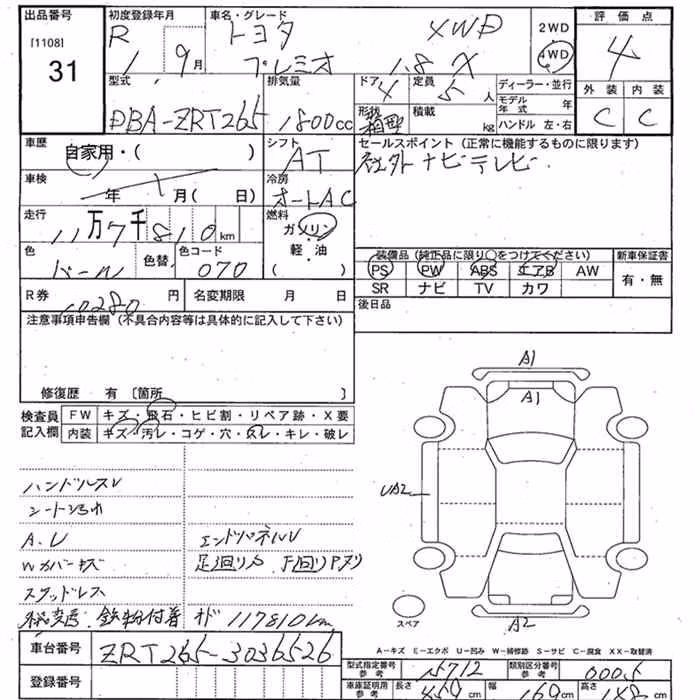 出品番号 初度登録年月 車名・グレード 評価点
[1108] R 1 9月 トヨタ 4WD 2WD 4
31 プレミオ 1.8 X 4WD
型式 排気量 ドア 定員 ディーラー・並行 外装 内装
DBA-ZRT265 1800cc 4 5人 モデル年式 年 C C
形状 箱型 積載 kg ハンドル 左・右
車歴 自家用・( ) シフト AT セールスポイント(正常に機能するものに限ります)
社外ナビテレビ
車検 年 月( 日) 冷房 オートAC
走行 11万7千810km 燃料 ガソリン・軽・油( )
色 パール 色替 色コード 070
装備品(純正品に限り○をつけてください) 新車保証書
PS PW ABS エアB AW 有・無
SR ナビ TV カワ
R券 10280円 名変期限 月 日 後日品
注意事項申告欄(不具合内容等は具体的に記入して下さい)
修復歴 有 〔箇所 〕
検査員記入欄 FW キズ・飛石・ヒビ割・リペア跡・X要
内装 キズ・汚レ・コゲ・穴・スレ・キレ・破レ
A1
A1
UA2
ハンドルスレ
シートシミ
A.U エンドパネルU
Wカバーキズ 足廻りサ 下廻りアヌリ
スタッドレス
鉄粉付着 オド 117810km
スペア
A2
A-キズ E-エクボ U-凹み W-補修跡 S-サビ C-腐食 XX-取替済
車台番号 ZRT265-3036526
型式指定番号 参考 15712 類別区分番号 参考 0005
登録番号
車庫証明用 参考 長さ 459cm 幅 169cm 高さ cm